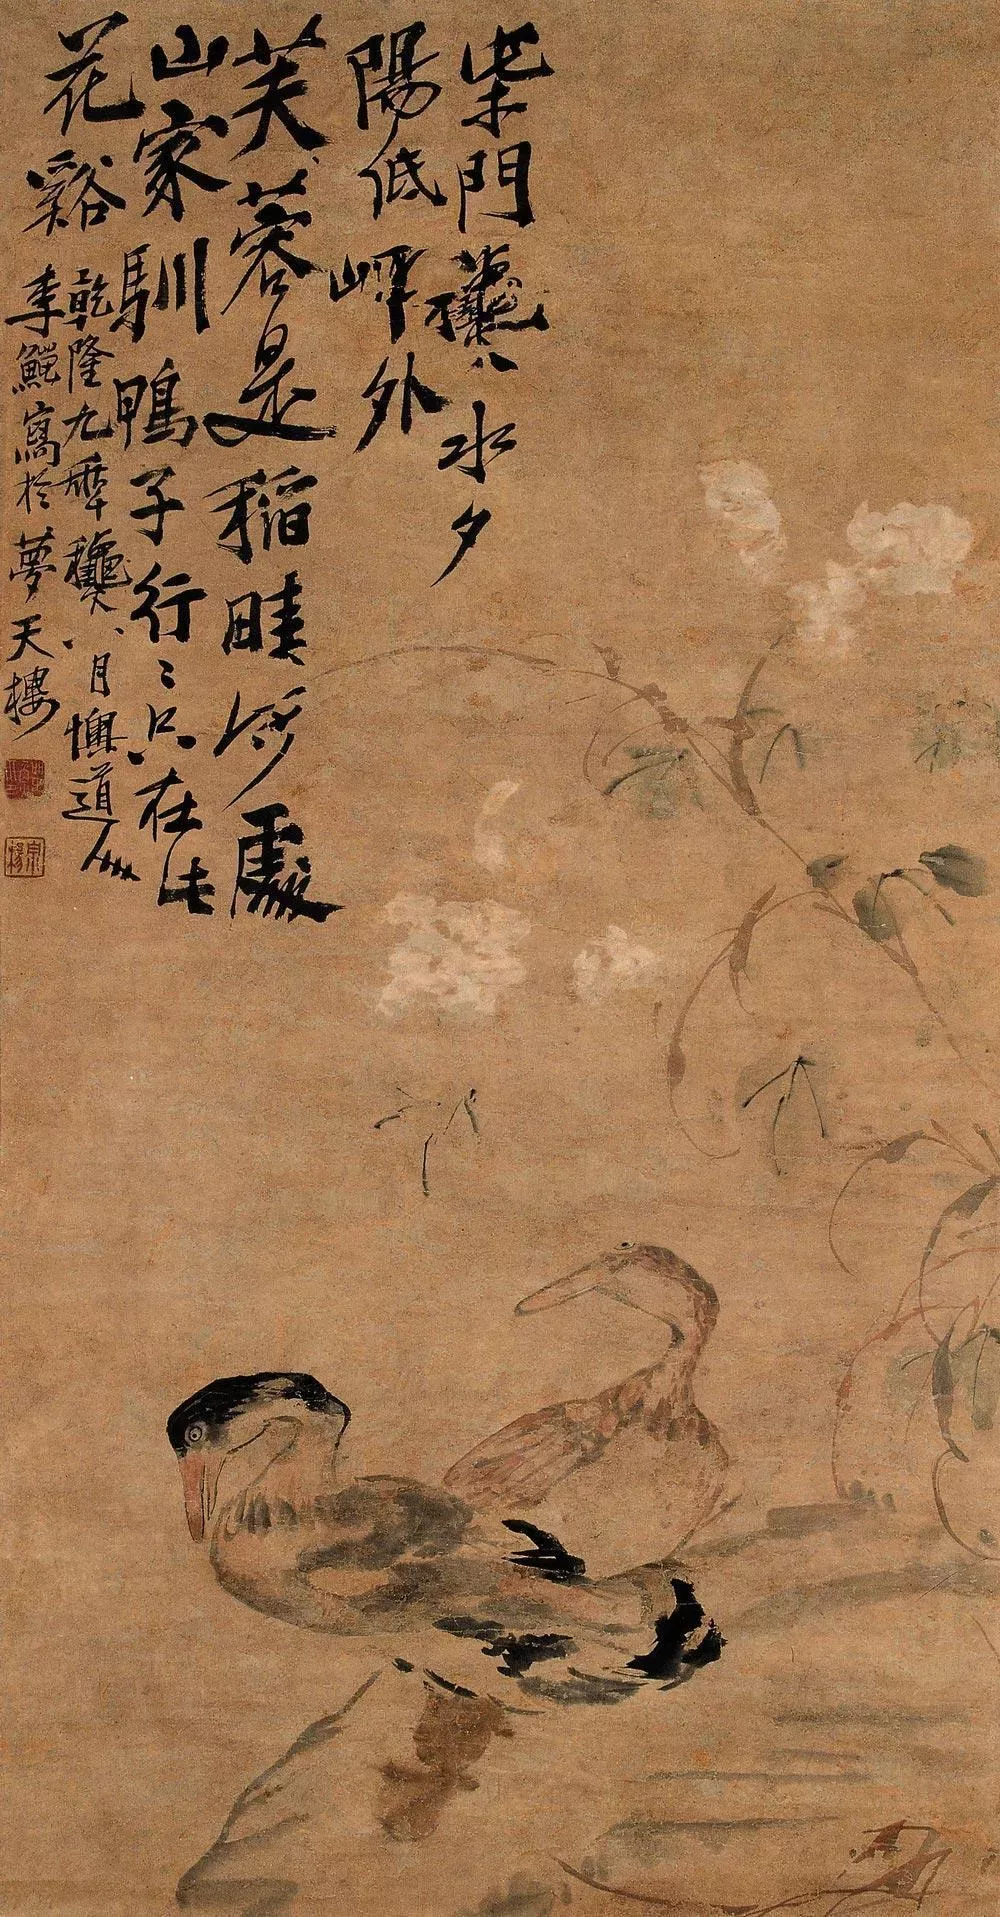 柴門龝水夕
陽低岸外
芙蓉是稻畦何處
山家馴鴨子行〻只在此
花谿
乾隆九年龝八月懊道人
李鱓寫於夢天樓